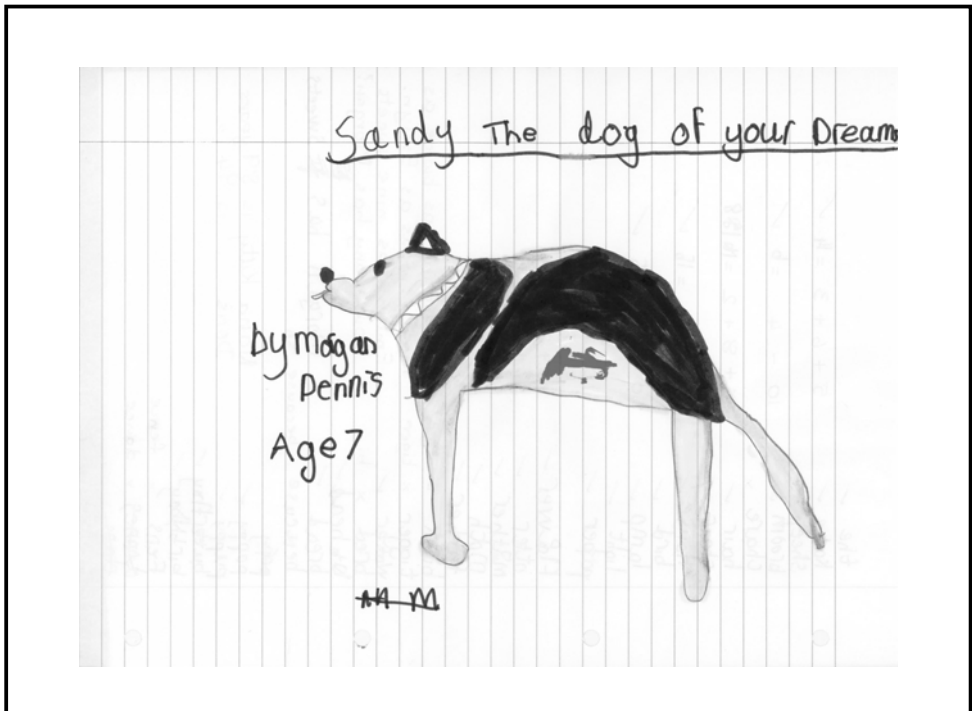 Sandy The dog of your Dream
by mogan
Dennis
Age 7